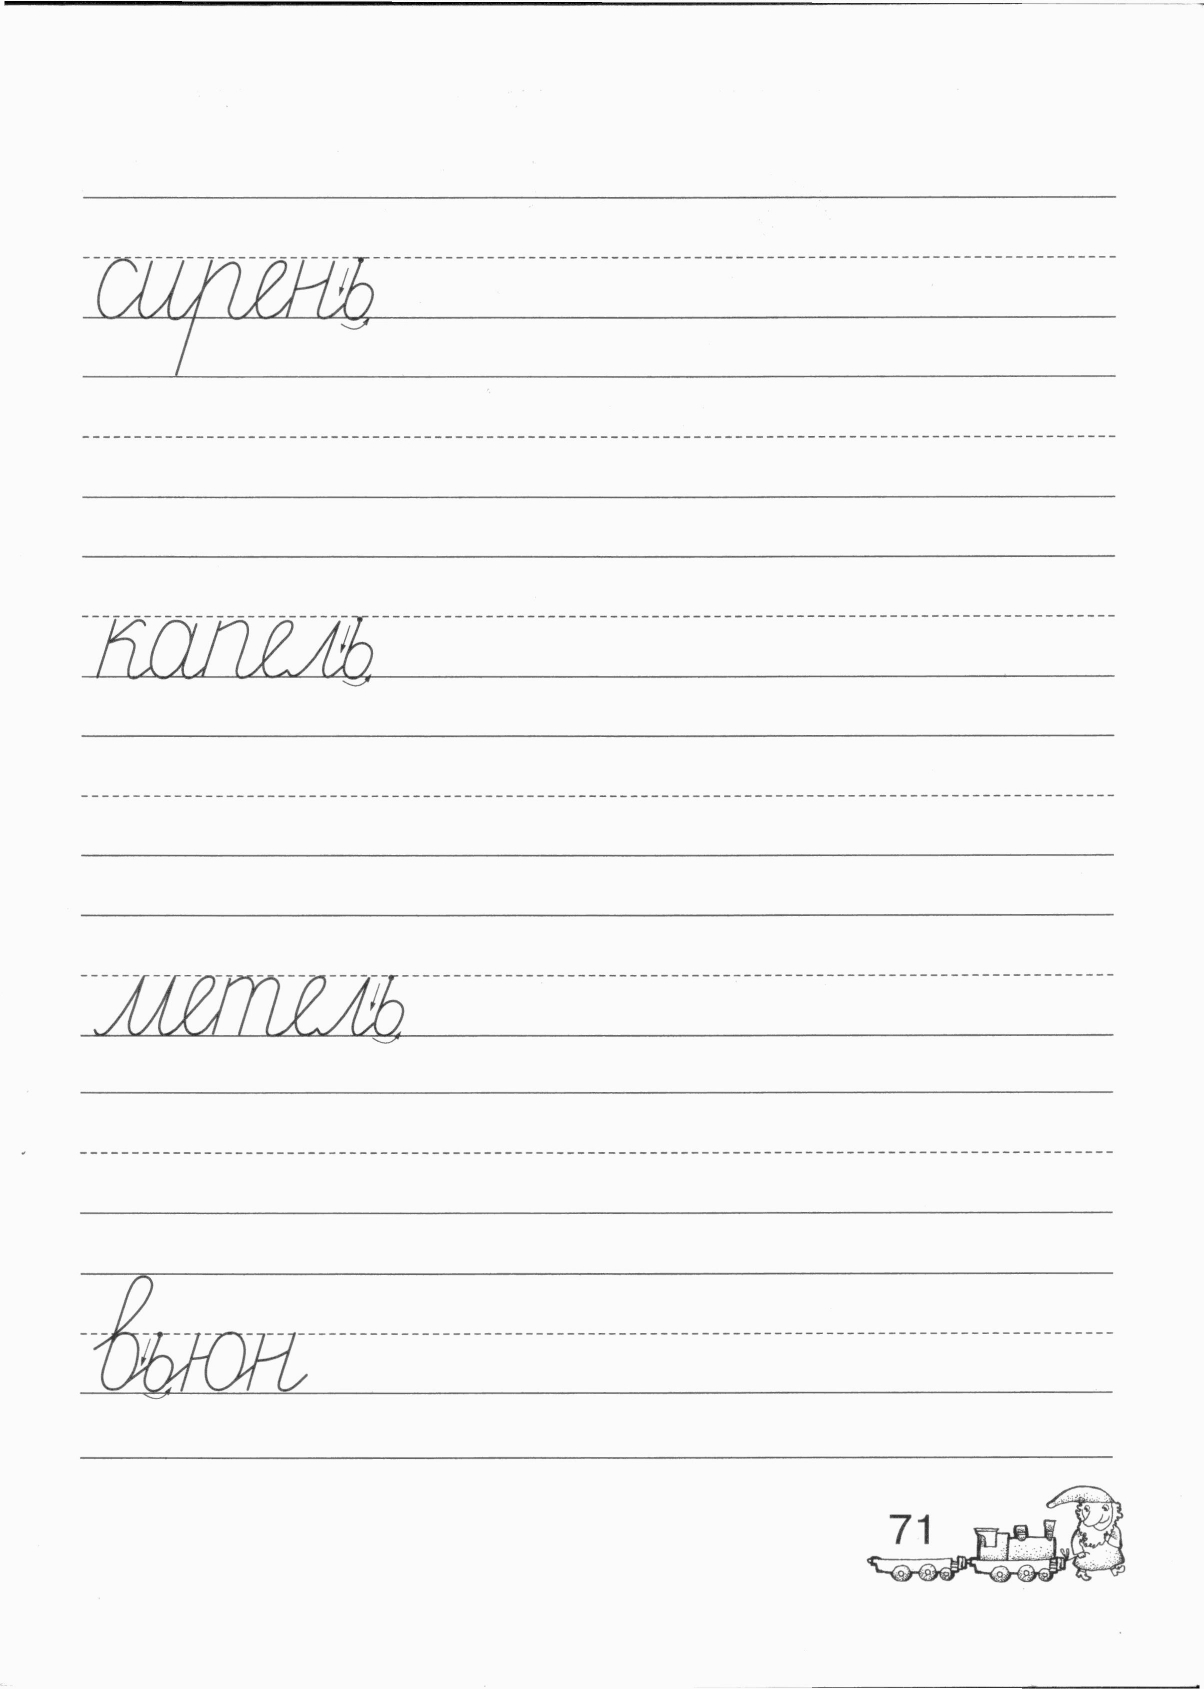 сирень
капель
метель
вьюн
71